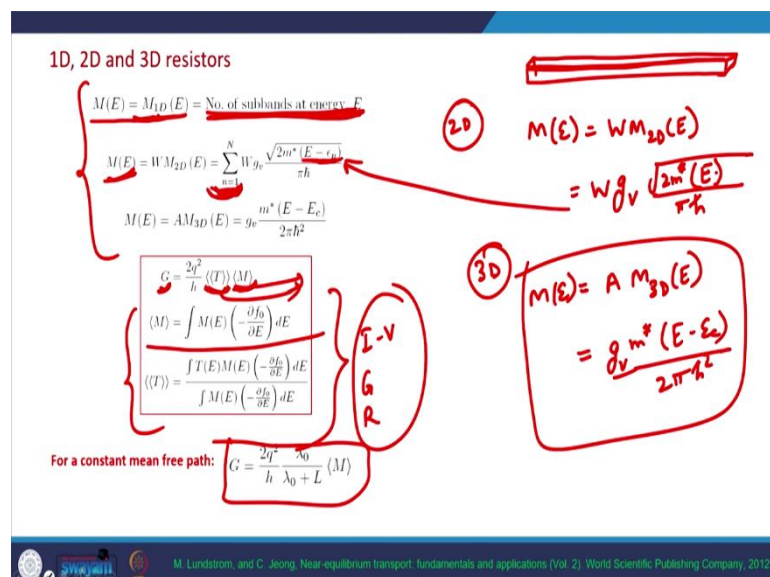 1D, 2D and 3D resistors
M(E) = M_{1D}(E) = No. of subbands at energy E
M(E) = WM_{2D}(E) = \sum_{n=1}^{N} W g_v \frac{\sqrt{2m^*(E-\epsilon_n)}}{\pi\hbar}
M(E) = AM_{3D}(E) = g_v \frac{m^*(E-E_c)}{2\pi\hbar^2}
G = \frac{2q^2}{h} ⟨⟨T⟩⟩ ⟨M⟩
⟨M⟩ = \int M(E) \left(-\frac{\partial f_0}{\partial E}\right) dE
⟨⟨T⟩⟩ = \frac{\int T(E)M(E)\left(-\frac{\partial f_0}{\partial E}\right)dE}{\int M(E)\left(-\frac{\partial f_0}{\partial E}\right)dE}
For a constant mean free path: G = \frac{2q^2}{h} \frac{\lambda_0}{\lambda_0 + L} ⟨M⟩
I-V
G
R
2D
M(E) = WM_{2D}(E)
= W g_v \frac{\sqrt{2m^*(E)}}{\pi\hbar}
3D
M(E) = A M_{3D}(E)
= \frac{g_v m^*(E-E_c)}{2\pi\hbar^2}
swayam
M. Lundstrom, and C. Jeong, Near-equilibrium transport: fundamentals and applications (Vol. 2). World Scientific Publishing Company, 2012